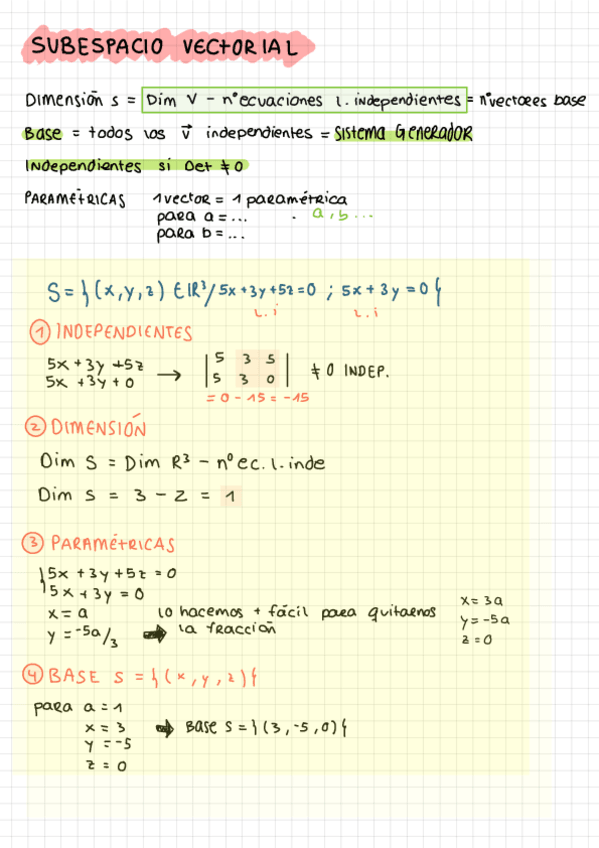 SUBESPACIO VECTORIAL
Dimensión s = Dim V - nº ecuaciones l. independientes = nº vectores base
Base = todos los v⃗ independientes = Sistema Generador
Independientes si Det ≠ 0
PARAMÉTRICAS 1 vector = 1 paramétrica
para a = ... . a, b ...
para b = ...
S = }(x,y,z) ∈ IR³/5x+3y+5z=0 ; 5x+3y=0{
L.i L.i
① INDEPENDIENTES
5x+3y+5z
5x+3y+0 → | 5 3 5 | | 5 3 0 | ≠ 0 INDEP.
= 0 - 15 = -15
② DIMENSIÓN
Dim S = Dim R³ - nº ec. l. inde
Dim S = 3 - 2 = 1
③ PARAMÉTRICAS
}5x + 3y + 5z = 0
}5x + 3y = 0
x = a lo hacemos + fácil para quitarnos
y = -5a/3 ⇒ la fracción
x = 3a
y = -5a
z = 0
④ BASE S = }(x,y,z){
para a = 1
x = 3 ⇒ Base S = }(3,-5,0){
y = -5
z = 0